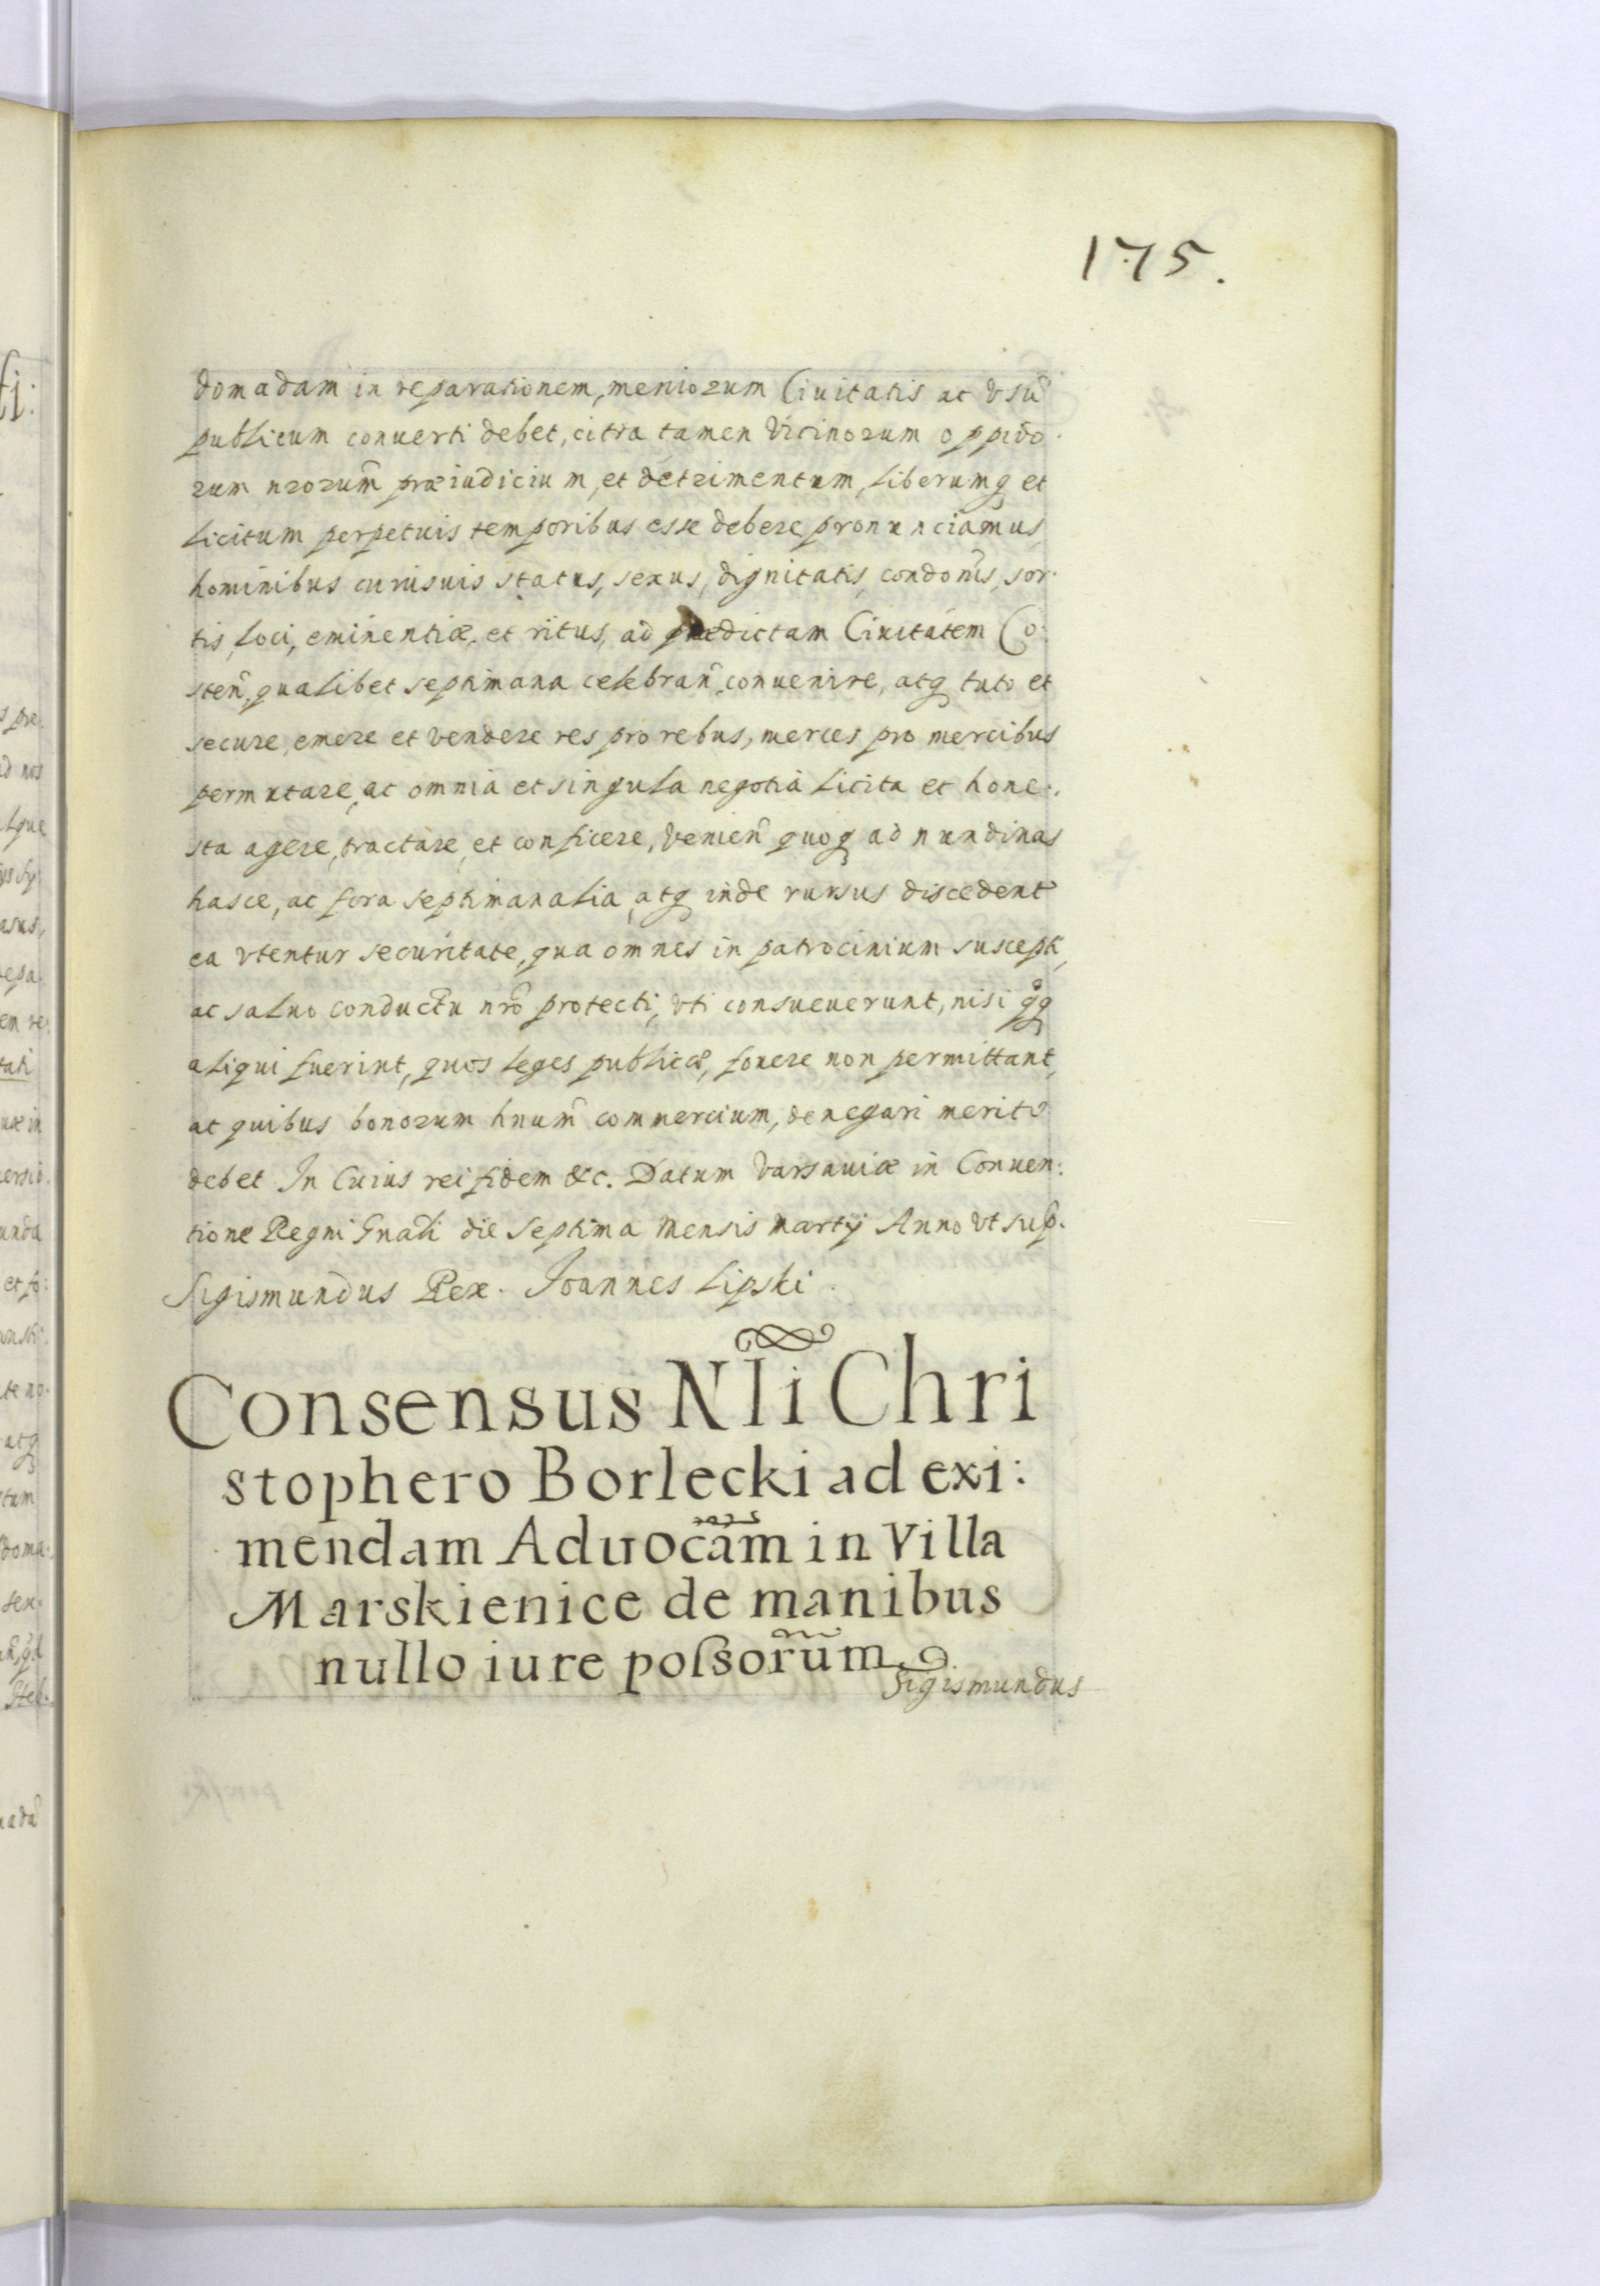 175.
domadam in reparationem, meniorum Ciuitatis ac vsũ
publicum conuerti debet, citra tamen vicinorum oppido:
rum nrorum̃ præiudicium, et detrimentum, liberumq et
licitum perpetuis temporibus esse debere pronunciamus,
hominibus cuiusuis status, sexus, dignitatis, condonis̃, sor:
tis, loci, eminentiæ, et ritus, ad prædictam Ciuitatem Co:
steñ, qualibet septimana celebrañ, conuenire, atq tuto et
secure, emere et vendere res pro rebus, merces pro mercibus
permutare, ac omnia et singula negotia licita et hone:
sta agere, tractare, et conficere, venieñ quoq ad nundinas
hasce, ac fora septimanalia, atq inde rursus discedent
ea vtentur securitate, qua omnes in patrocinium suscepti,
ac saluo conductu nrõ protecti, vti consueuerunt, nisi
aliqui fuerint, quos leges publicæ, fouere non permittant,
at quibus bonorum hnum̃ commercium, denegari merito
debet In Cuius rei fidem &c. Datum Varsauiæ in Conuen:
tione Regni Gñali die Septima Mensis Martij Anno vt sup.
Sigismundus Rex. Joannes Lipski
Consensus Nli Chri
stophero Borlecki ad exi:
mendam Aduocãm in Villa
Marskienice de manibus
nullo iure poſsorũm
Sigismundus